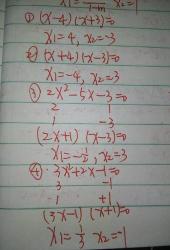 1-m x2=1
① (x-4)(x+3)=0
x1=4, x2=-3
② (x+4)(x-3)=0
x1=-4, x2=3
③ 2x²-5x-3=0
2 1
1 -3
(2x+1)(x-3)=0
x1=-1/2, x2=3
④ 3x²+2x-1=0
3 -1
1 +1
(3x-1)(x+1)=0
x1=1/3 x2=-1